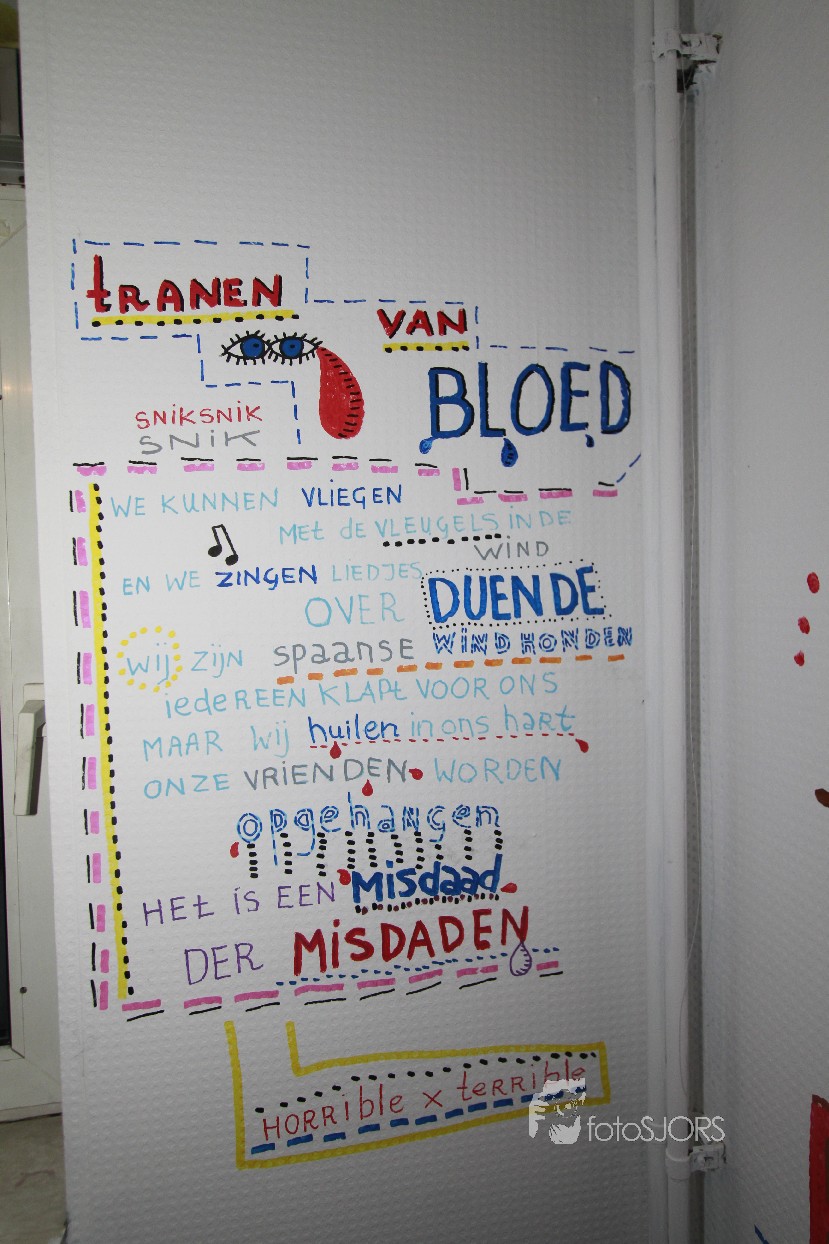 tRANEN
VAN
BLOED
SNIKSNIK
SNIK
WE KUNNEN VLIEGEN
MEt de VLEUGELS IN DE
WIND
EN WE ZINGEN LIEDJES
OVER DUENDE
wij ZIJN spaanse WINDHONDEN
iedeREEN KLAPt VOOR ONS
MAAR wij huilen in ons hart
ONZE VRIENDEN WORDEN
opgehangen
HEt IS EEN Misdaad
DER MISDADEN
HORRible x teRRible
fotoSJORS